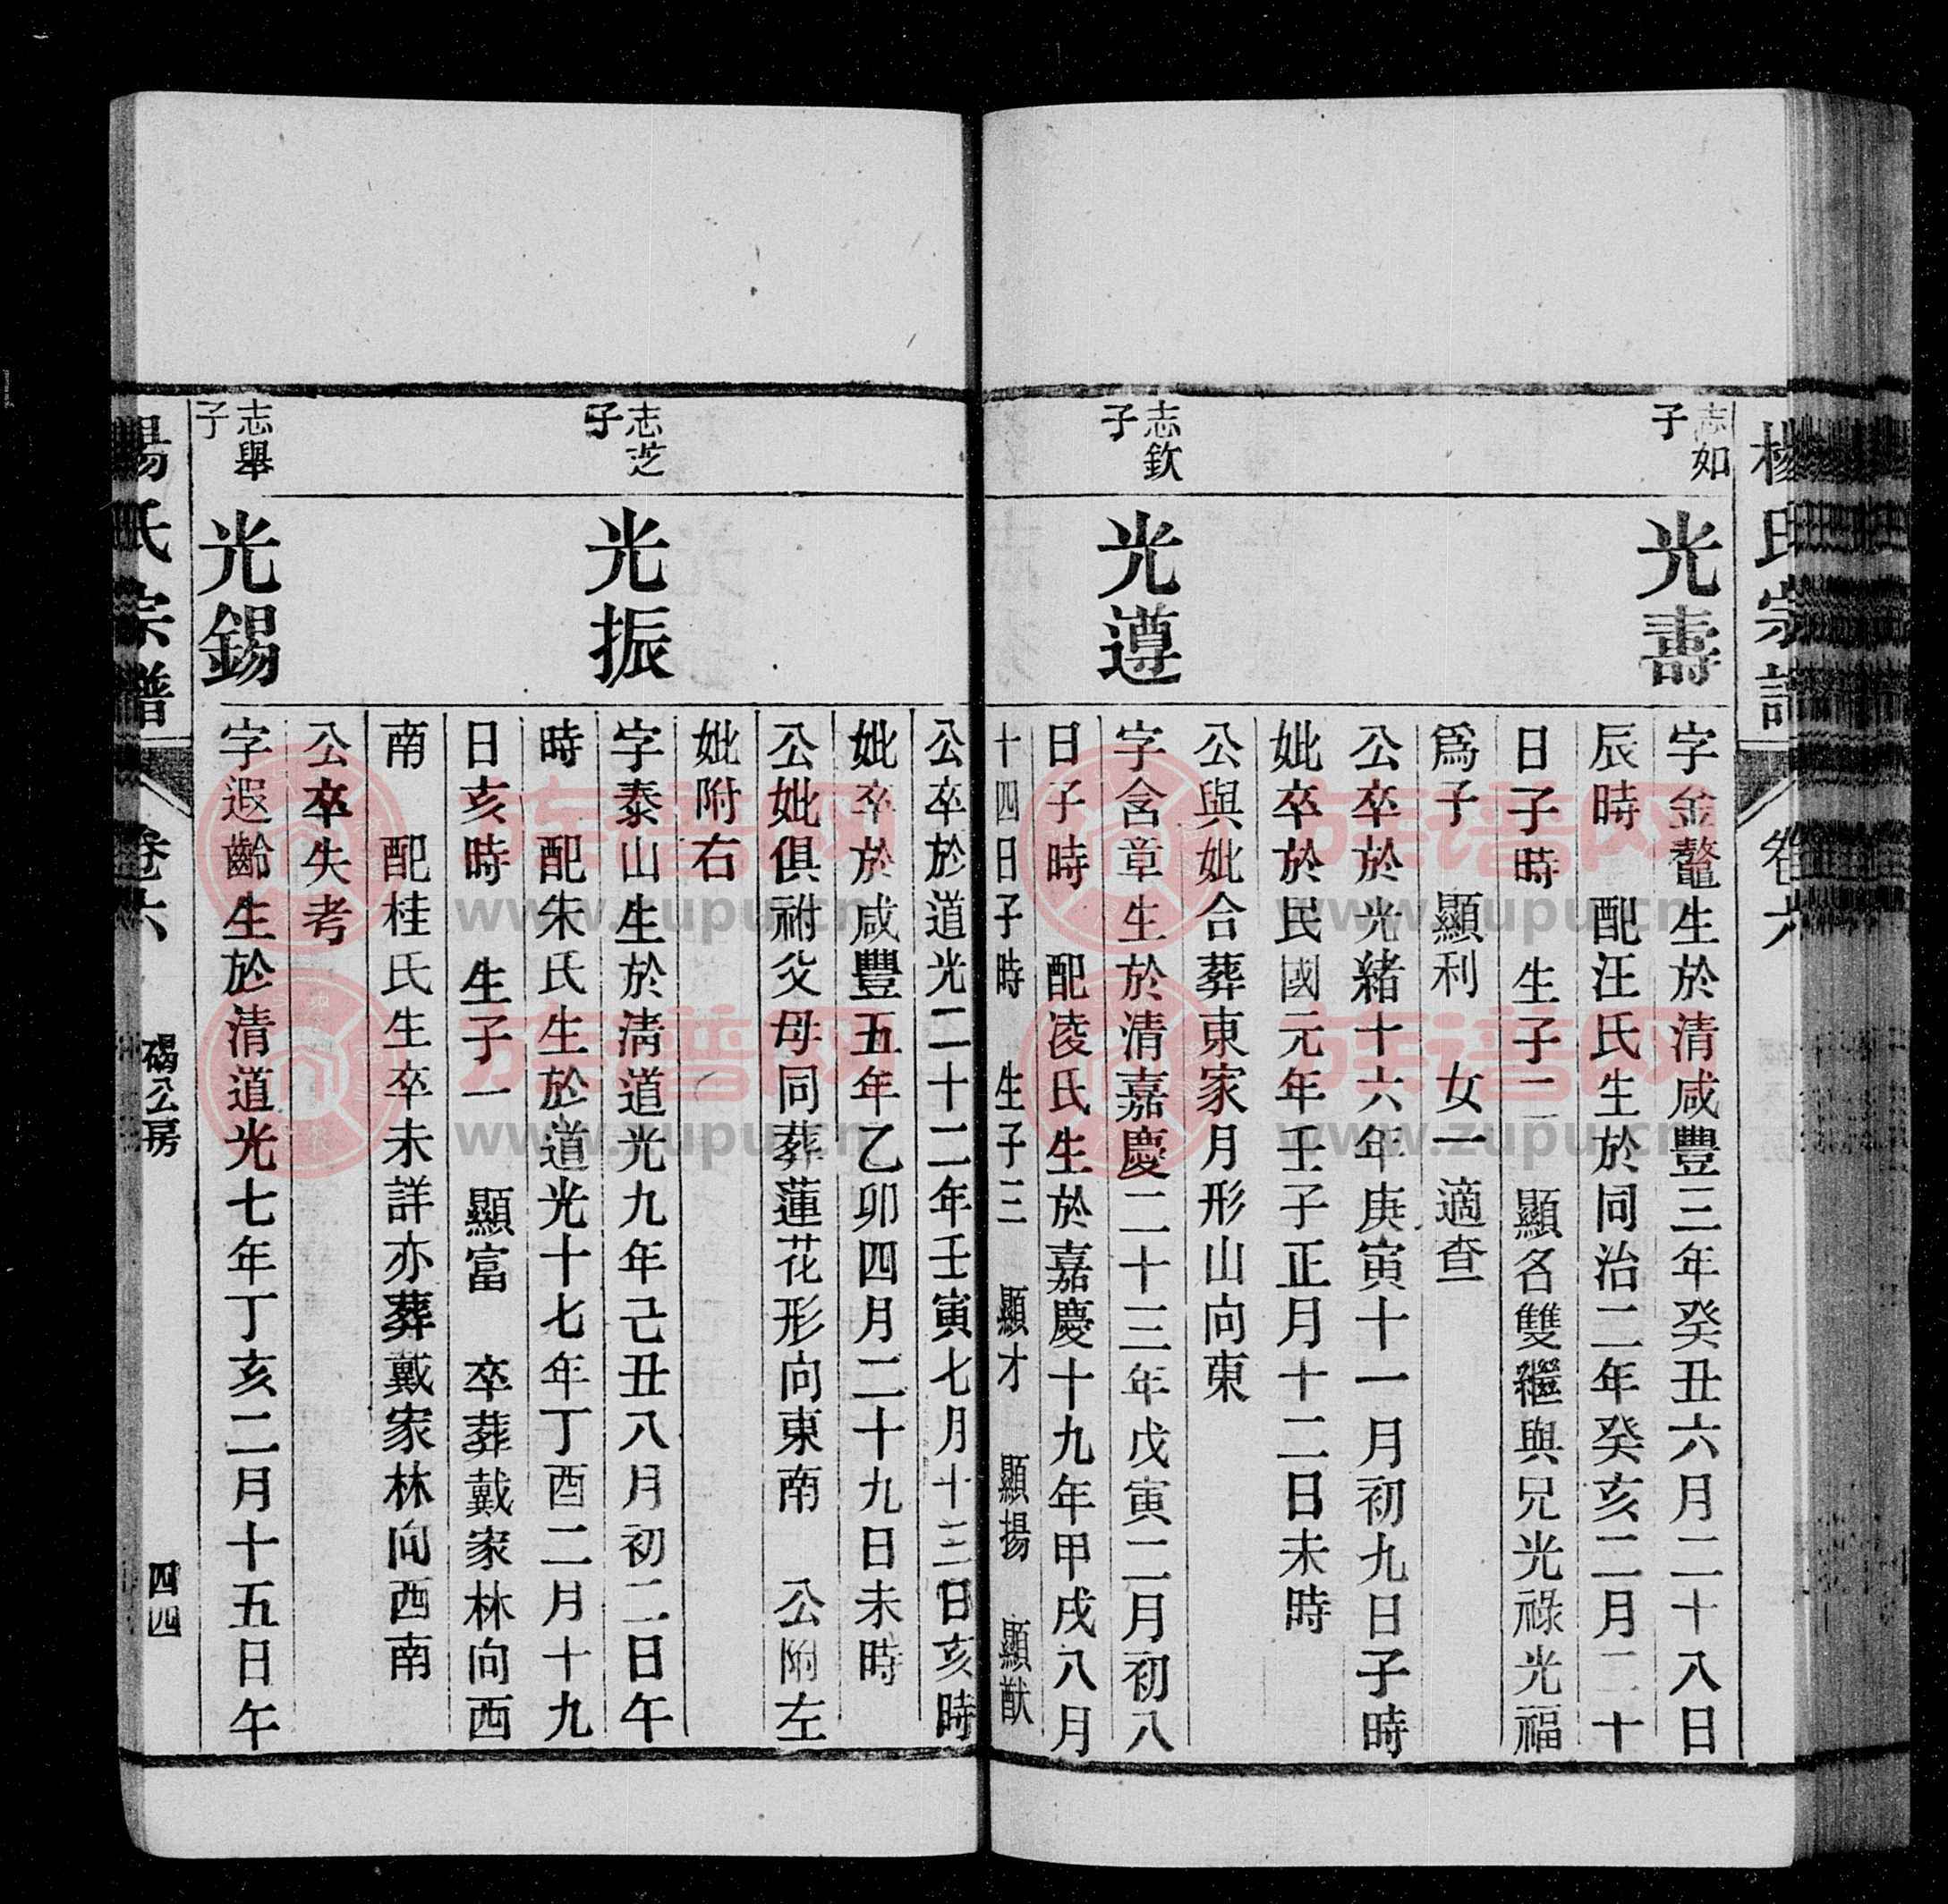 楊氏宗譜
卷六
志如子
光壽
字金鼇生於清咸豐三年癸丑六月二十八日
辰時　配汪氏生於同治二年癸亥二月二十
日子時　生子二　顯名雙繼與兄光祿光福
爲子　顯利　女一適查
公卒於光緒十六年庚寅十一月初九日子時
妣卒於民國元年壬子正月十二日未時
公與妣合葬東家月形山向東
志欽子
光遵
字含章生於清嘉慶二十三年戊寅二月初八
日子時　配凌氏生於嘉慶十九年甲戌八月
十四日子時　生子三　顯才　顯揚　顯猷
公卒於道光二十二年壬寅七月十三日亥時
妣卒於咸豐五年乙卯四月二十九日未時
公妣俱祔父母同葬蓮花形向東南　公附左
妣附右
志芝子
光振
字泰山生於清道光九年己丑八月初二日午
時　配朱氏生於道光十七年丁酉二月十九
日亥時　生子一　顯富　卒葬戴家林向西
南　配桂氏生卒未詳亦葬戴家林向西南
公卒失考
志舉子
光錫
字遐齡生於清道光七年丁亥二月十五日午
楊氏宗譜
卷六
碣公房
四四
族谱网
www.zupu.cn
族谱网
www.zupu.cn
族谱网
www.zupu.cn
族谱网
www.zupu.cn